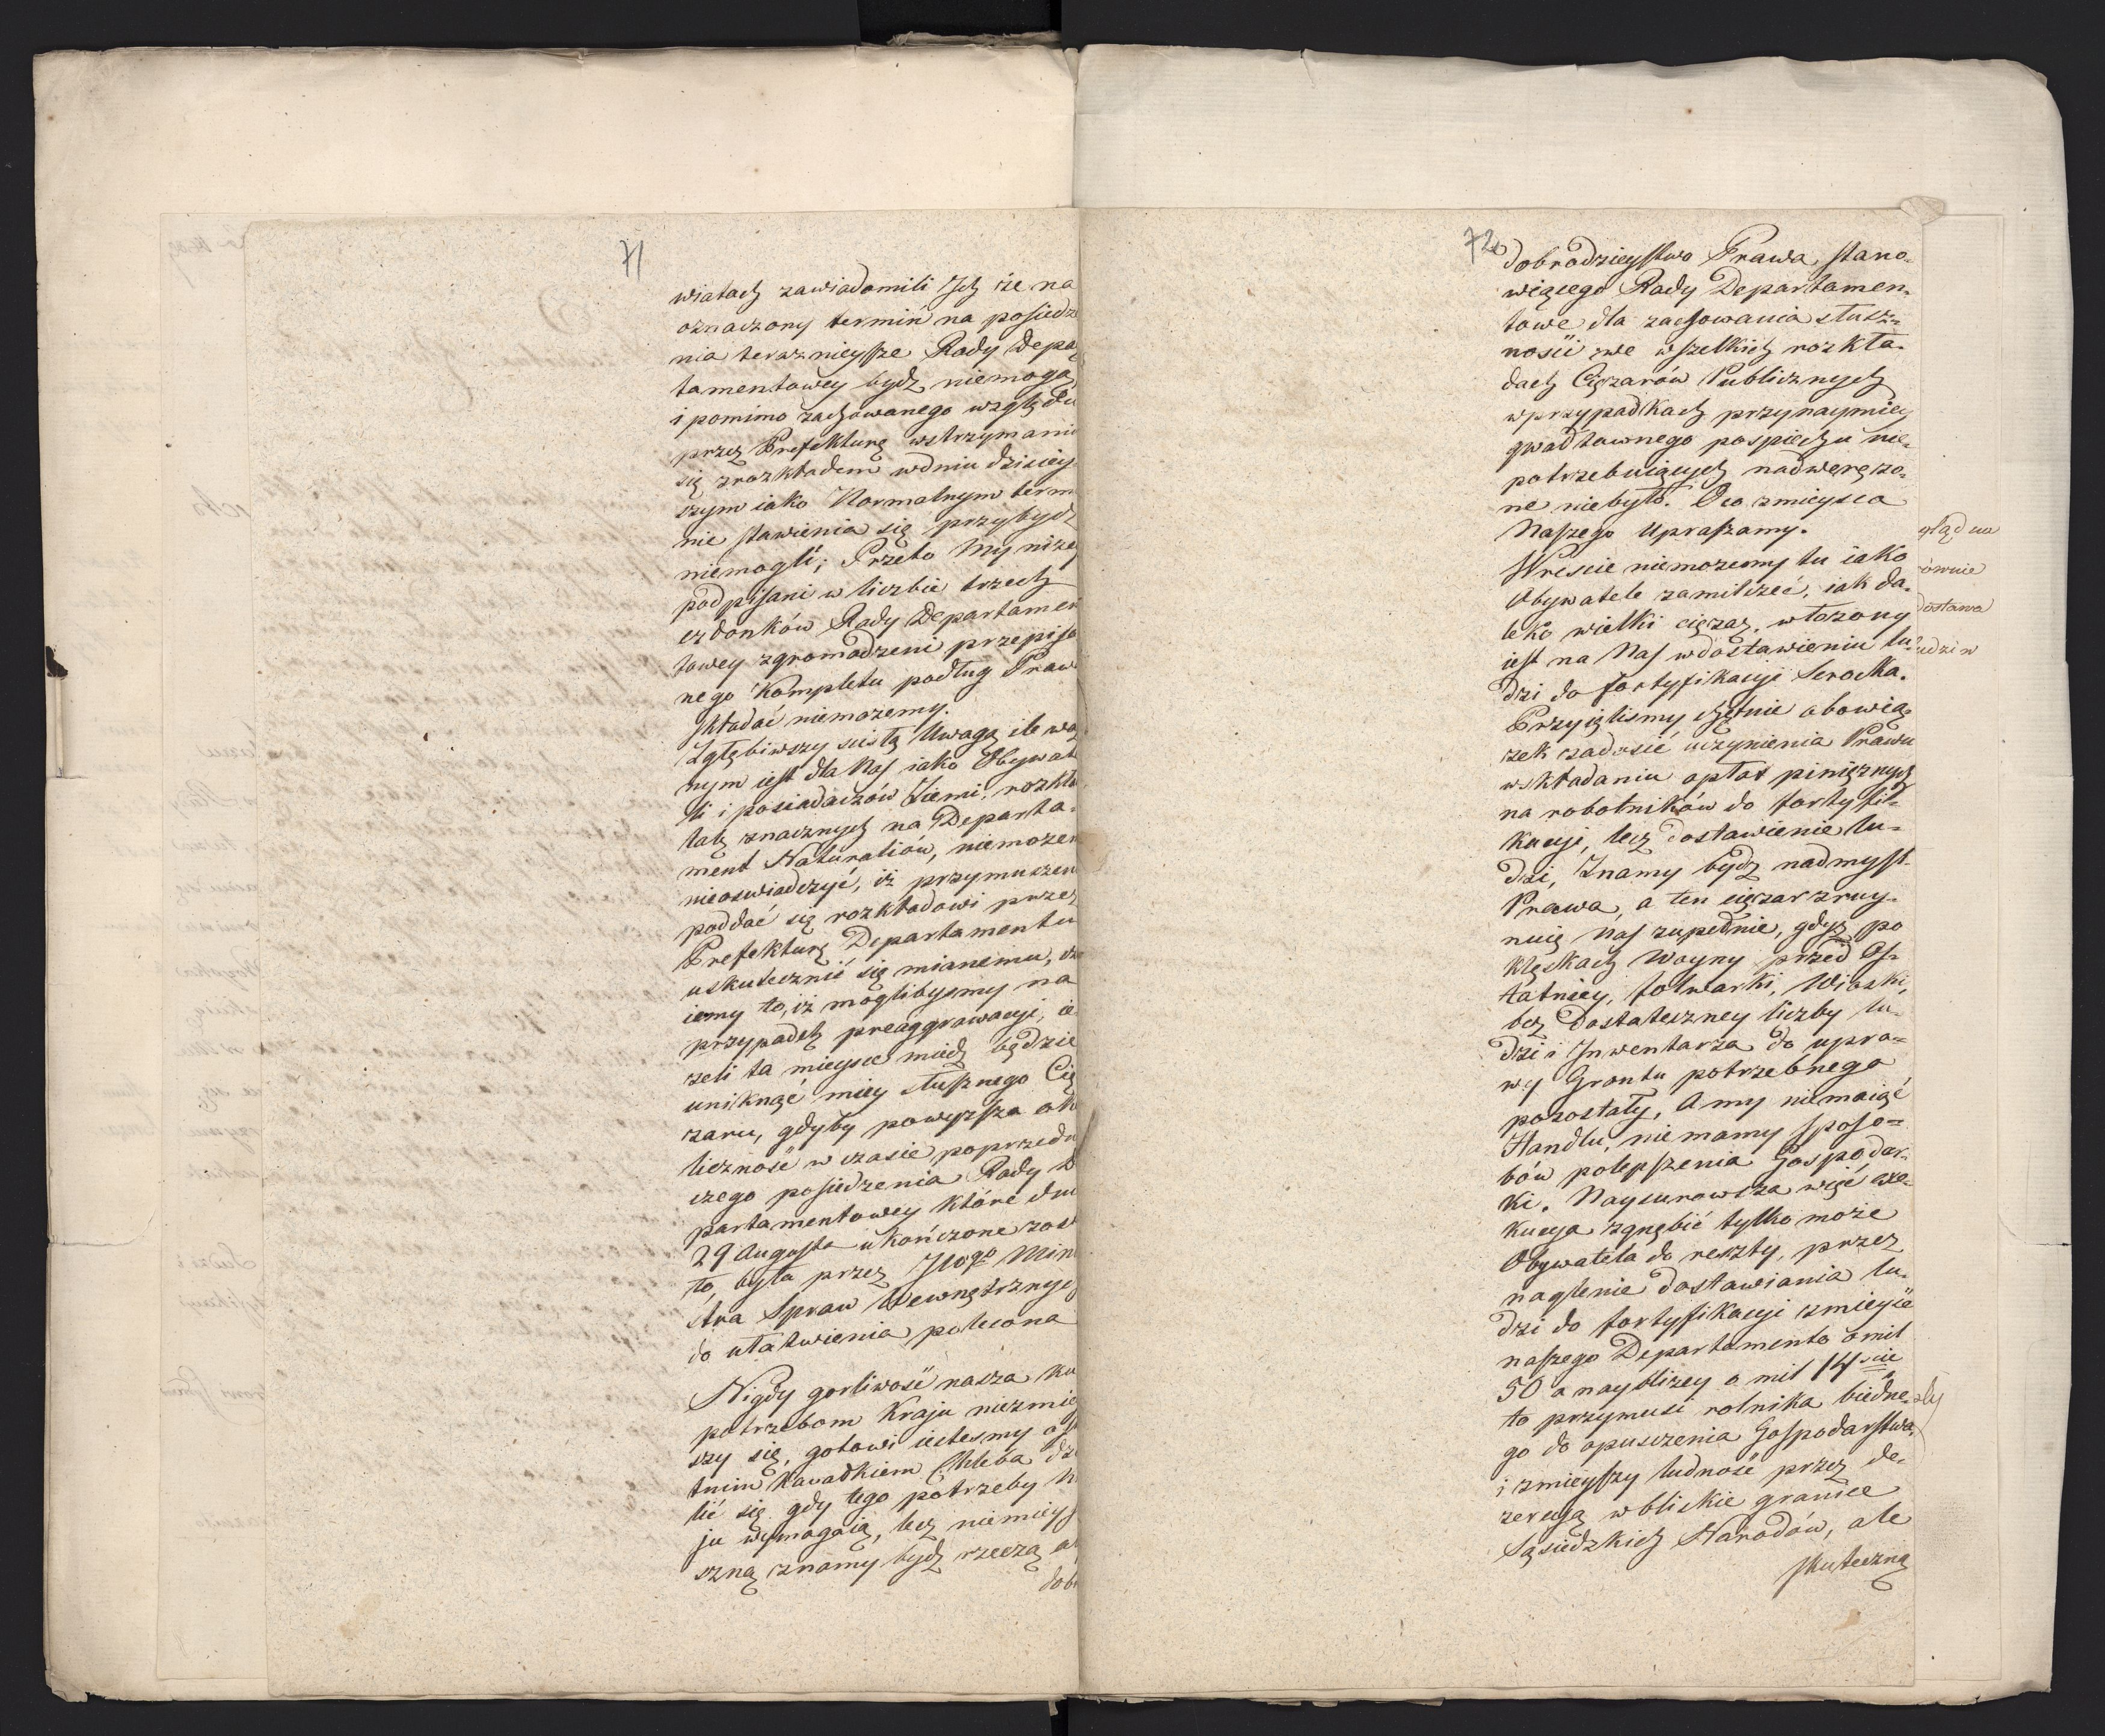 71
wiatach zawiadomili Ich że na
oznaczony termin na posiedze
nia teraznieysze Rady Depar
tamentowey bydz niemogą,
i pomimo zachowanego względu
przez Prefekturę wstrzymania
się zrozkładem wdniu dzisiey
szym iako Normalnym termi
nie stawienia się przybydz
niemogli; Przeto My niżey
podpisani w liczbie trzech
członków Rady Departamen
towey zgromadzeni przepisa
nego Kompletu podług Praw
składać niemożemy.
Zgłębiwszy scisłą Uwagą ile waż
nym iest dla Nas iako Obywate
li i posiadaczów Ziemi, rozkła
tak znacznych na Departa-
ment Naturaliów, niemożem
nieoswiadczyć, iż przymuszeni
poddać się rozkładowi przez
Prefekturę Departamentu
uskutecznić się mianemu, czu
iemy to, iż moglibysmy na
przypadek preaggrawacyi, ie-
żeli ta mieysce mieć będzie
uniknąć miey słusznego Cię
żaru, gdyby powyższa oko
liczność w czasie poprzedni
czego posiedzenia Rady De
partamentowey które dnia
29 Augusta ukończone zosta
to, była przez JWgo Mini
stra Spraw Wewnętrznych
do ułatwienia polecona
Nigdy gorliwość nasza ku
potrzebom Kraju niezmiey
szy się, gotowi iestesmy osta
tnim Kawałkiem Chleba dzie
lić się gdy tego potrzeby Kra
ju wymagaią, lecz niemieysz
szną znamy bydz rzeczą ab
dobr
72
dobrodzieystwo Prawa, stano-
wiącego Rady Departamen-
towe dla zachowania słusz-
nosci we wszelkich rozkła-
dach Ciężarów Publicznych
wprzypadkach przynaymniey
gwałtownego pospiechu nie-
potrzebuiących nadwerężo-
ne niebyło. O co zmieysca
Naszego Upraszamy.
Wrescie niemożemy tu iako
Obywatele zamilczeć, iak da-
leko wielki ciężar, włożony
iest na Nas wdostawieniu lu-
dzi do fortyfikacyi Serocka.
Przyięlismy chętnie obowią-
zek zadosić uczynienia Prawu
wskładaniu opłat pinięznych
na robotników do fortyfi-
kacyi, lecz dostawienie lu-
dzi, Znamy bydz nadmysl
Prawa, a ten ciężar zruy-
nuię Nas zupełnie, gdyż po
klęskach Woyny przed Os-
tatniey, folwarki, Wioski,
bez Dostateczney liczby lu-
dzi i Inwentarza do upra-
wy Grontu potrzebnego
pozostały, A my niemaiąc
Handlu, niemamy sposo-
bów polepszenia Gospodar-
ki. Naysurowsza więc exe-
kucya zgnębić tylko może
Obywatela do reszty, przez
naglenie dostawiania lu-
dzi do fortyfikacyi zmieysce
naszego Departamento omil
50 a naybliżey o mil 14scie
to przymusi rolnika biedne-
go do opuszczenia Gospodarstwa,
i zmieyszy ludność przez de-
zercyą wbliskie granice
Sąsiedzkich Narodów, ale
skuteczną
gląd na
równie
dostawa
ludzi w